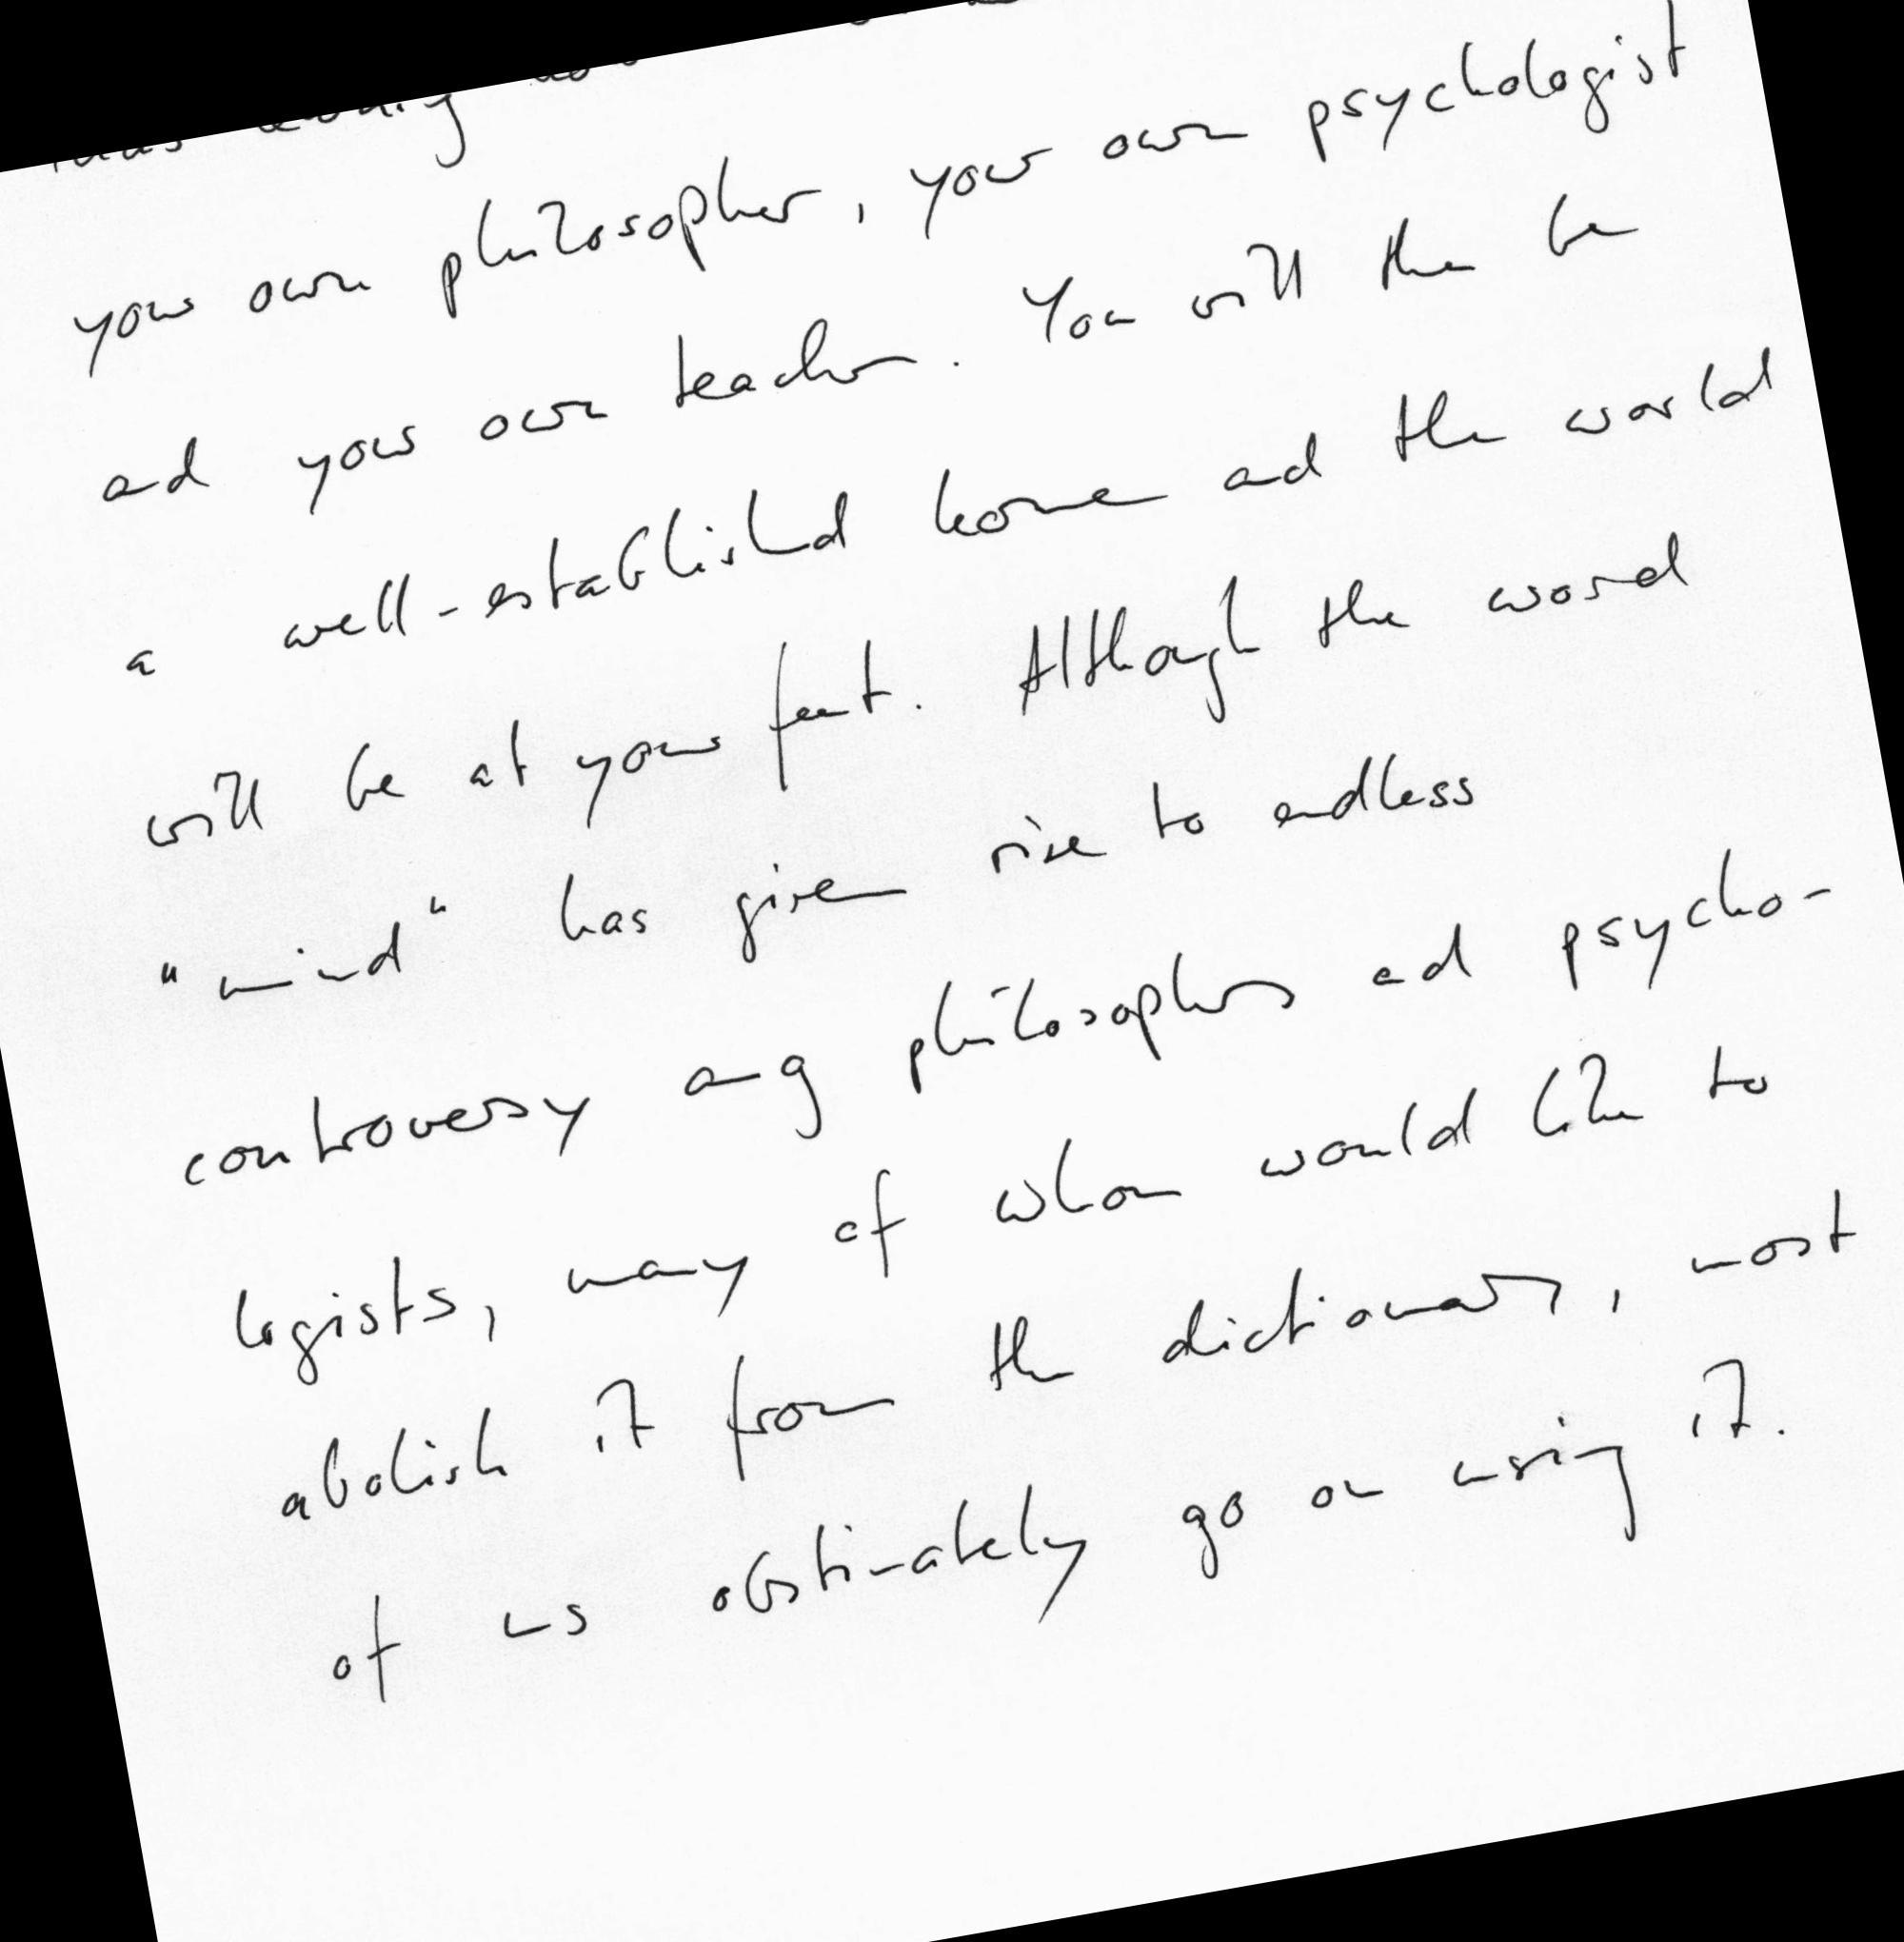 your own philosopher, your own psychologist
and your own teacher. You will then be
a well-established home and the world
will be at your feet. Although the word
"mind" has given rise to endless
controversy among philosophers and psycho-
logists, many of whom would like to
abolish it from the dictionary, most
of us obstinately go on using it.